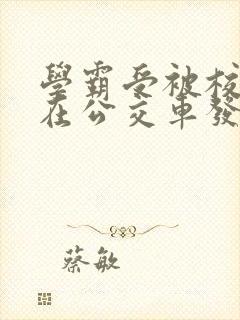 學霸受被校
在公交車發
蔡敏